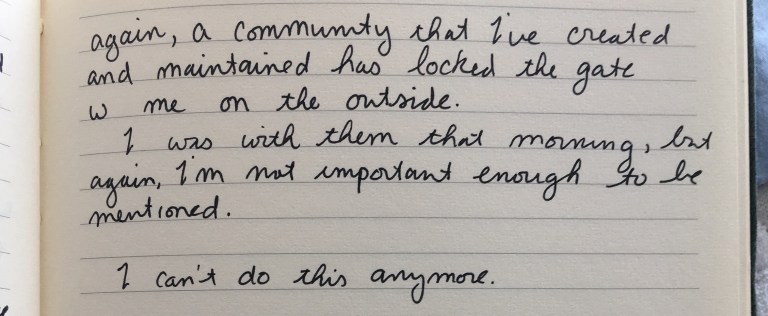 again, a community that I've created
and maintained has locked the gate
w me on the outside.
I was with them that morning, but
again, I'm not important enough to be
mentioned.
I can't do this anymore.